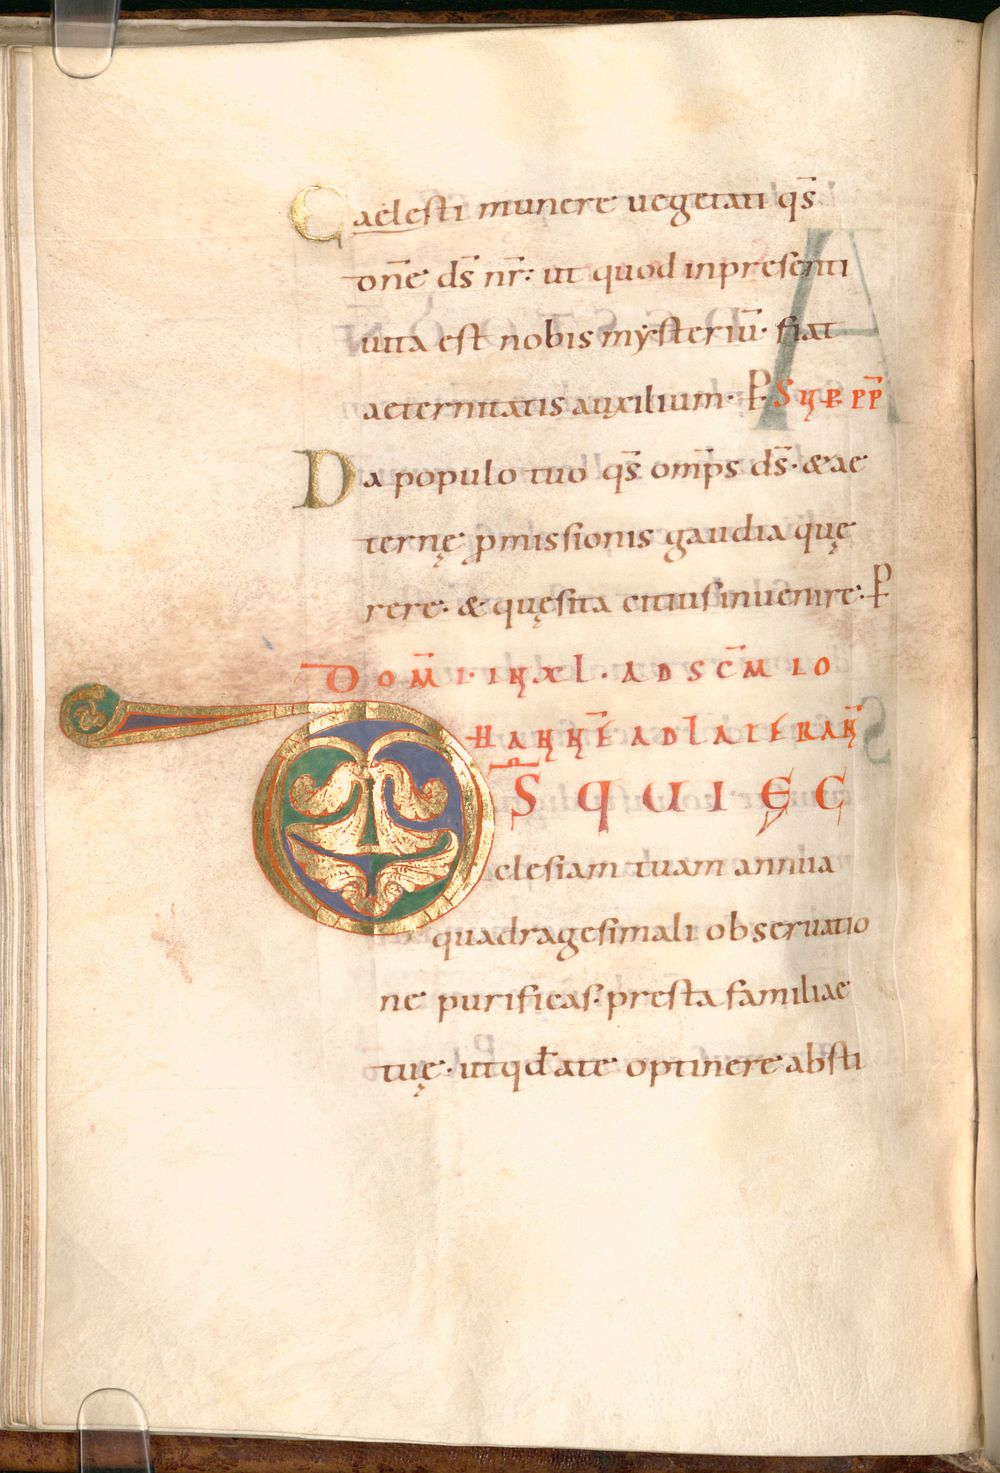 Caelesti munere uegetati qs̄
dōne ds̄ nr̄: ut quod inpresenti
uita est nobis mysteriū· fiat
aeternitatis auxilium· P· SUP PP̄
Da populo tuo qs̄ omp̄s ds̄· &ae
ternę p̱missionis gaudia quę
rere· & quęsita citius inuenire· P
DOM̄ I· IN XL· AD SC̄M IO
HANNĒ AD LATERAN̄
D S̄ QUI EC
clesiam tuam annua
quadragesimali obseruatio
ne purificas· presta familiae
tuę· ut qđ ate optinere absti